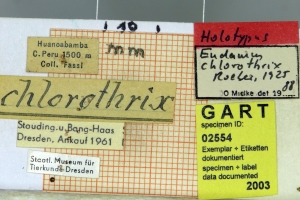 Huancabamba
C. Peru 1500 m
Coll. Fassl
mm
Holotypus
chlorothrix
Roeber, 1925
O Mielke det 19 88
chlorothrix
Stauding. u. Bang-Haas
Dresden, Ankauf 1961
Staatl. Museum für
Tierkunde Dresden
GART
specimen ID:
02554
Exemplar + Etiketten
dokumentiert
specimen + label
data documented
2003